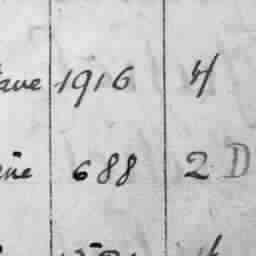 ave 1916 4
ene 688 2 D